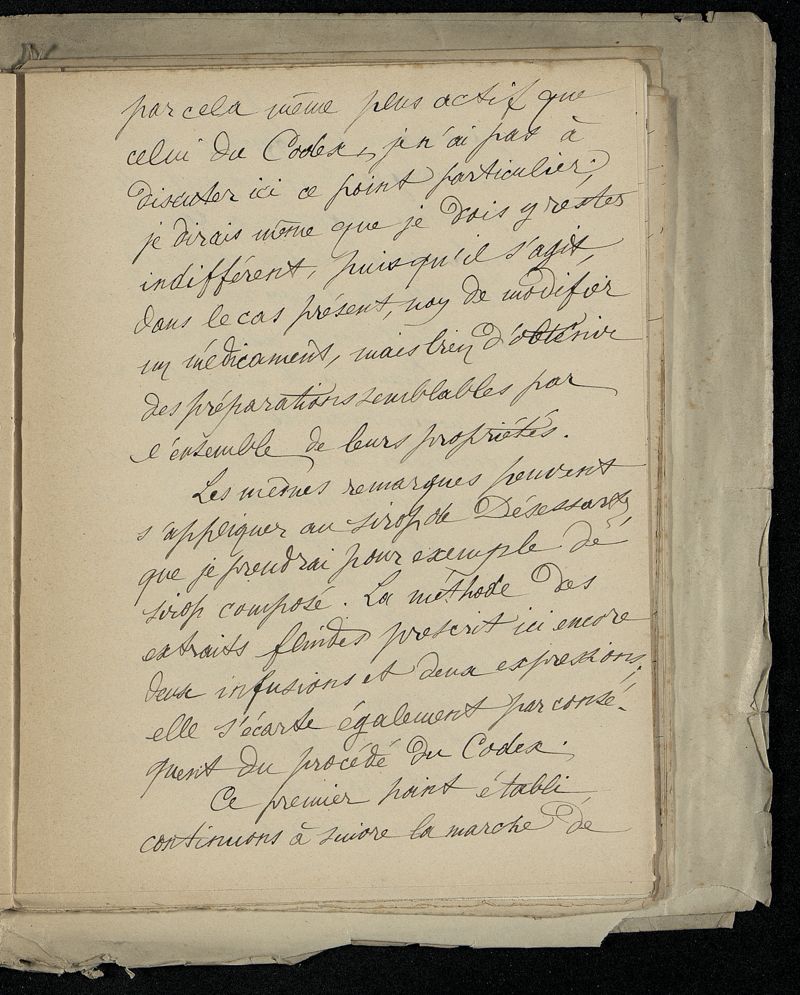 par cela même plus actif que
celui du Codex, je n'ai pas à
discuter ici ce point particulier;
je dirais même que je dois y rester
indifférent, puisqu'il s'agit,
dans le cas présent, non de modifier
un médicament, mais bien d'obtenir
des préparations semblables par
l'ensemble de leurs propriétés.
Les mêmes remarques peuvent
s'appliquer au sirop de Désessartz
que je prendrai pour exemple de
sirop composé. La méthode des
extraits fluides prescrit ici encore
deux infusions et deux expressions;
elle s'écarte également par consé-
quent du procédé du Codex.
Ce premier point établi
continuons à suivre la marche de